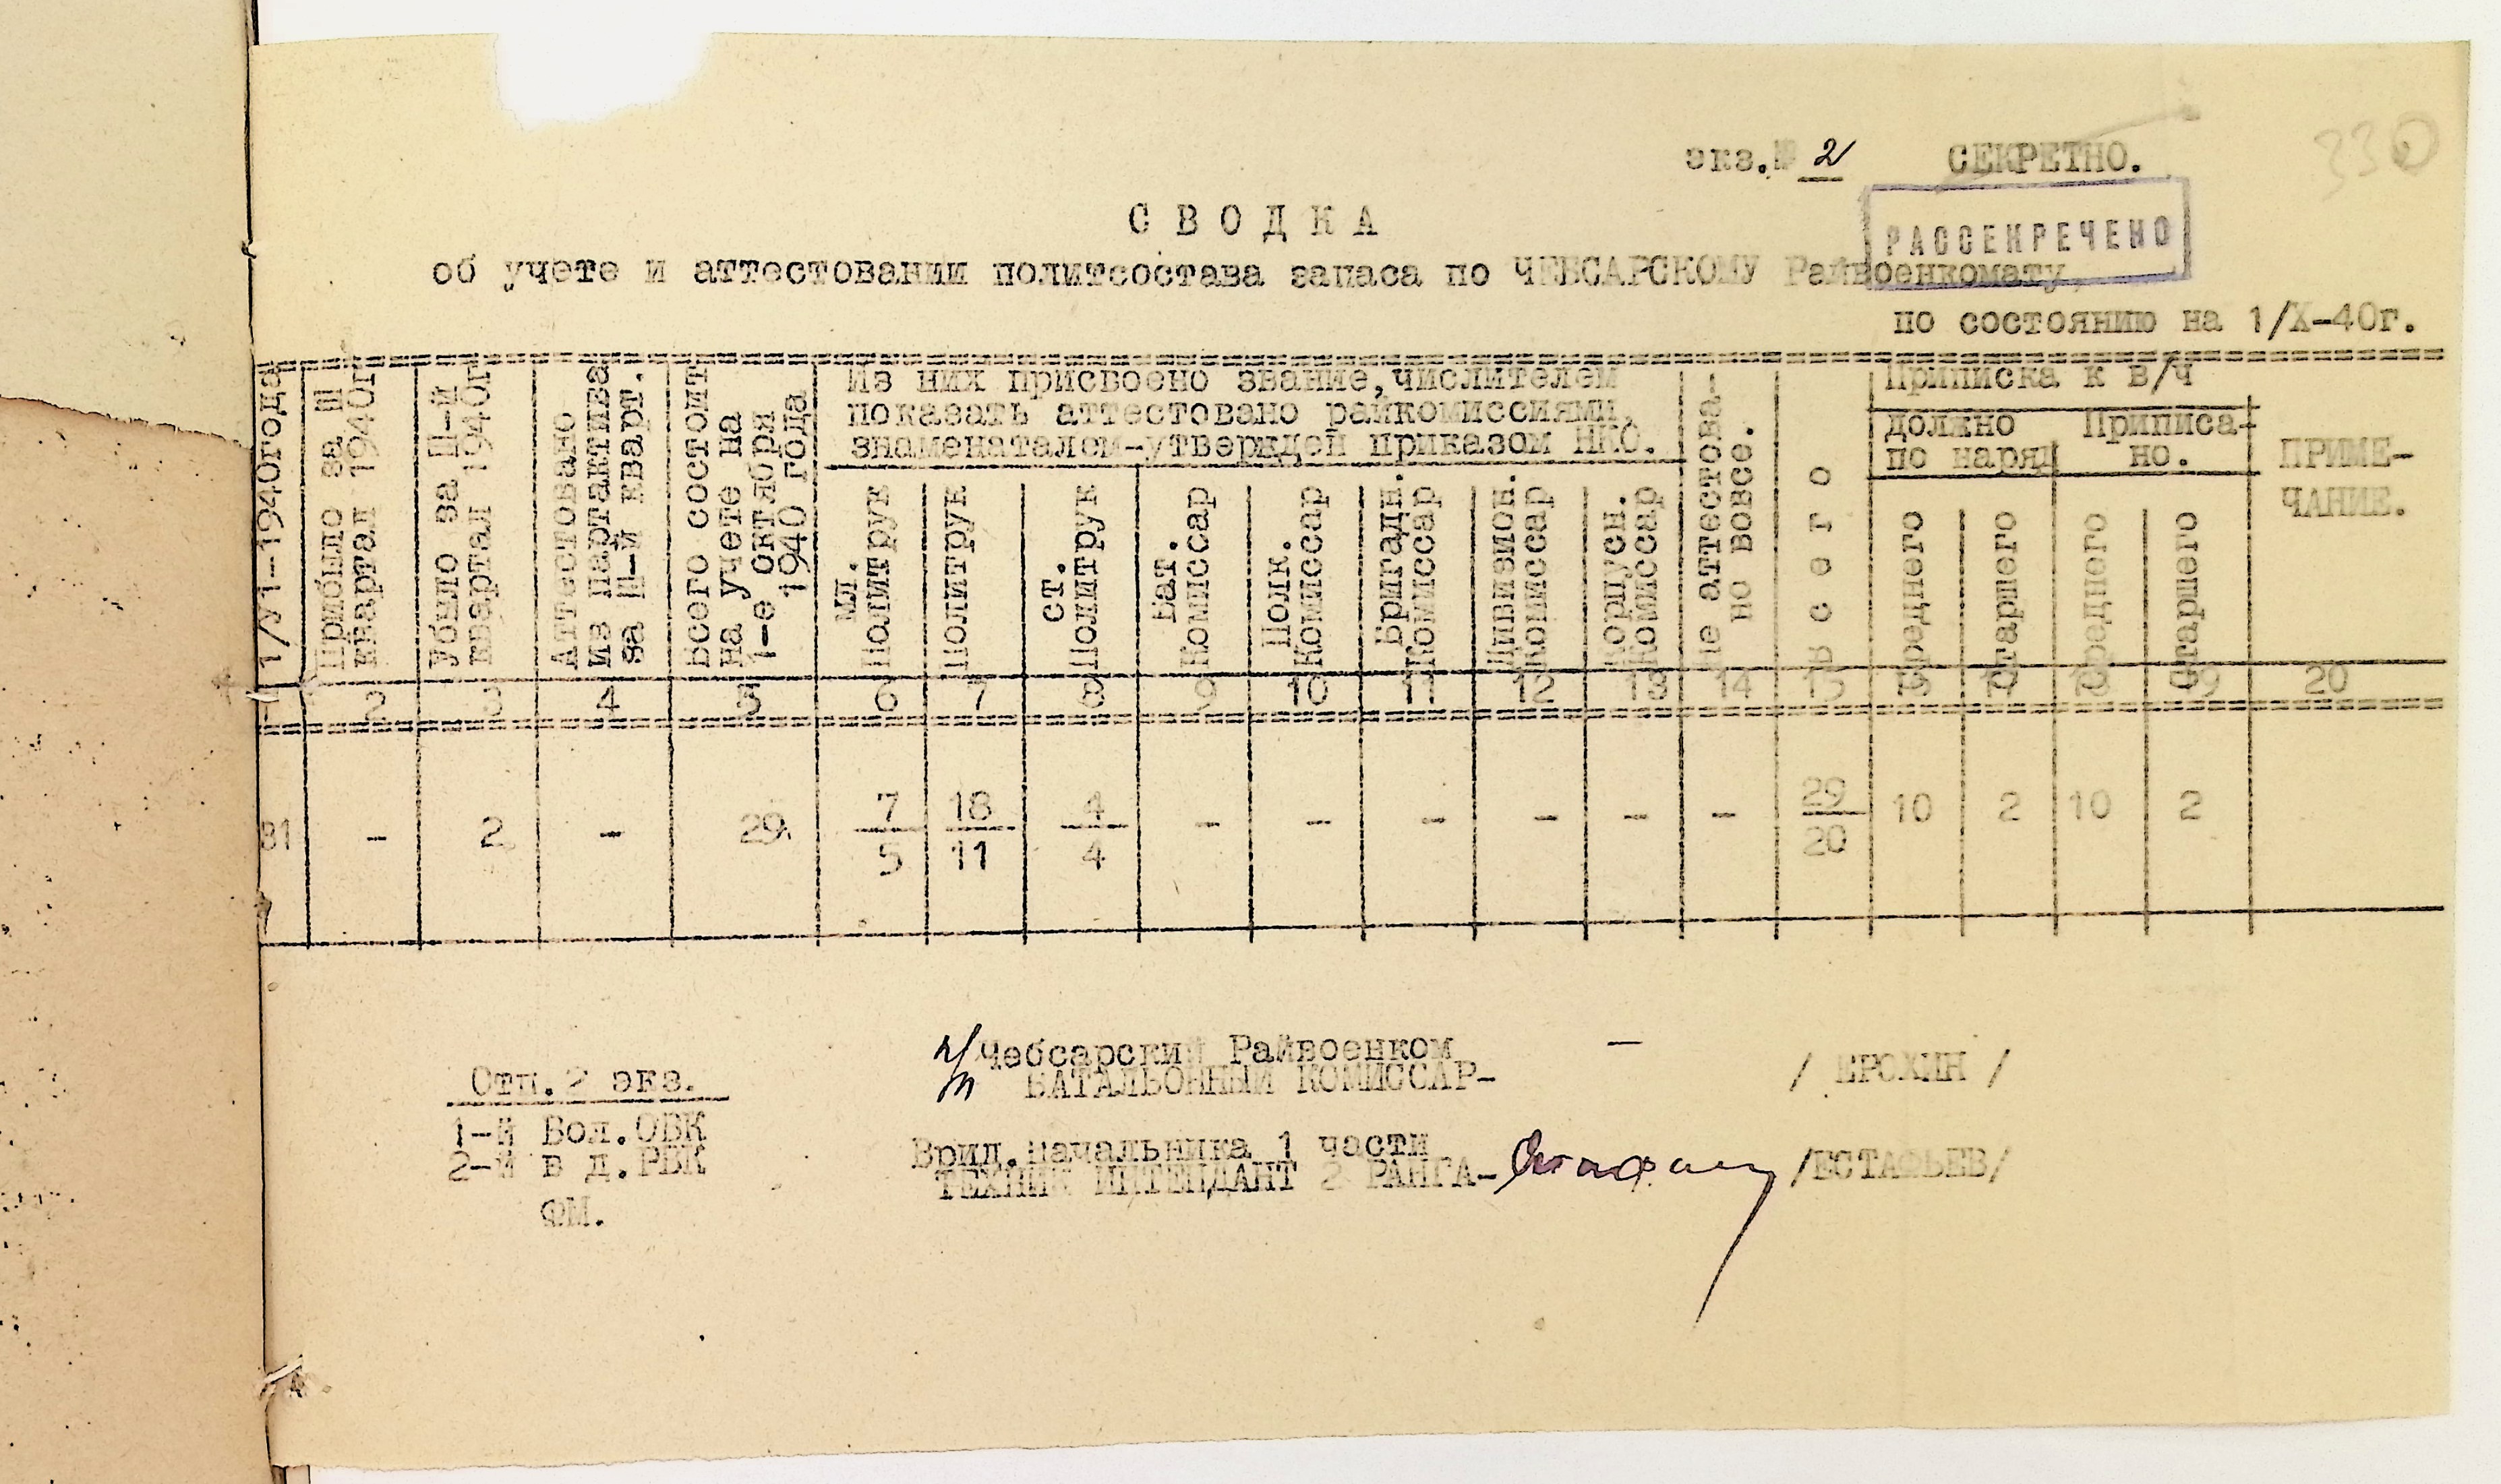 330
экз.№ 2 СЕКРЕТНО.
РАССЕКРЕЧЕНО
С В О Д К А
об учете и аттестовании политсостава запаса по ЧЕБСАРСКОМУ Райвоенкомату,
по состоянию на 1/X-40г.
1/У1-1940года
Прибыло за Ш
квартал 1940г
Убыло за Ш-й
квартал 1940г
Аттестовано
из партактива
за Ш-й кварт.
Всего состоит
на учете на
1-е октября
1940 года
Из них присвоено звание,числителем
показать аттестовано райкомиссиями,
знаменателем-утвержден приказом НКО.
мл.
Политрук
Политрук
ст.
Политрук
Бат.
Комиссар
Полк.
Комиссар
Бригадн.
Комиссар
Дивизион.
комиссар
Корпусн.
Комиссар
не аттестова-
но вовсе.
в с е г о
Приписка к в/ч
должно
по наряд
Приписа-
но.
Среднего
Старшего
Среднего
Старшего
ПРИМЕ-
ЧАНИЕ.
1 2 3 4 5 6 7 8 9 10 11 12 13 14 15 16 17 18 19 20
31 - 2 - 29. 7/5 18/11 4/4 - - - - - - 29/20 10 2 10 2
п/п Чебсарский Райвоенком —
БАТАЛЬОННЫЙ КОМИССАР- / ЕРОХИН /
Врид.начальника 1 части
ТЕХНИК ИНТЕНДАНТ 2 РАНГА- /ЕСТАФЬЕВ/
Отп.2 экз.
1-й Вол.ОВК
2-й в д.РВК
ФМ.